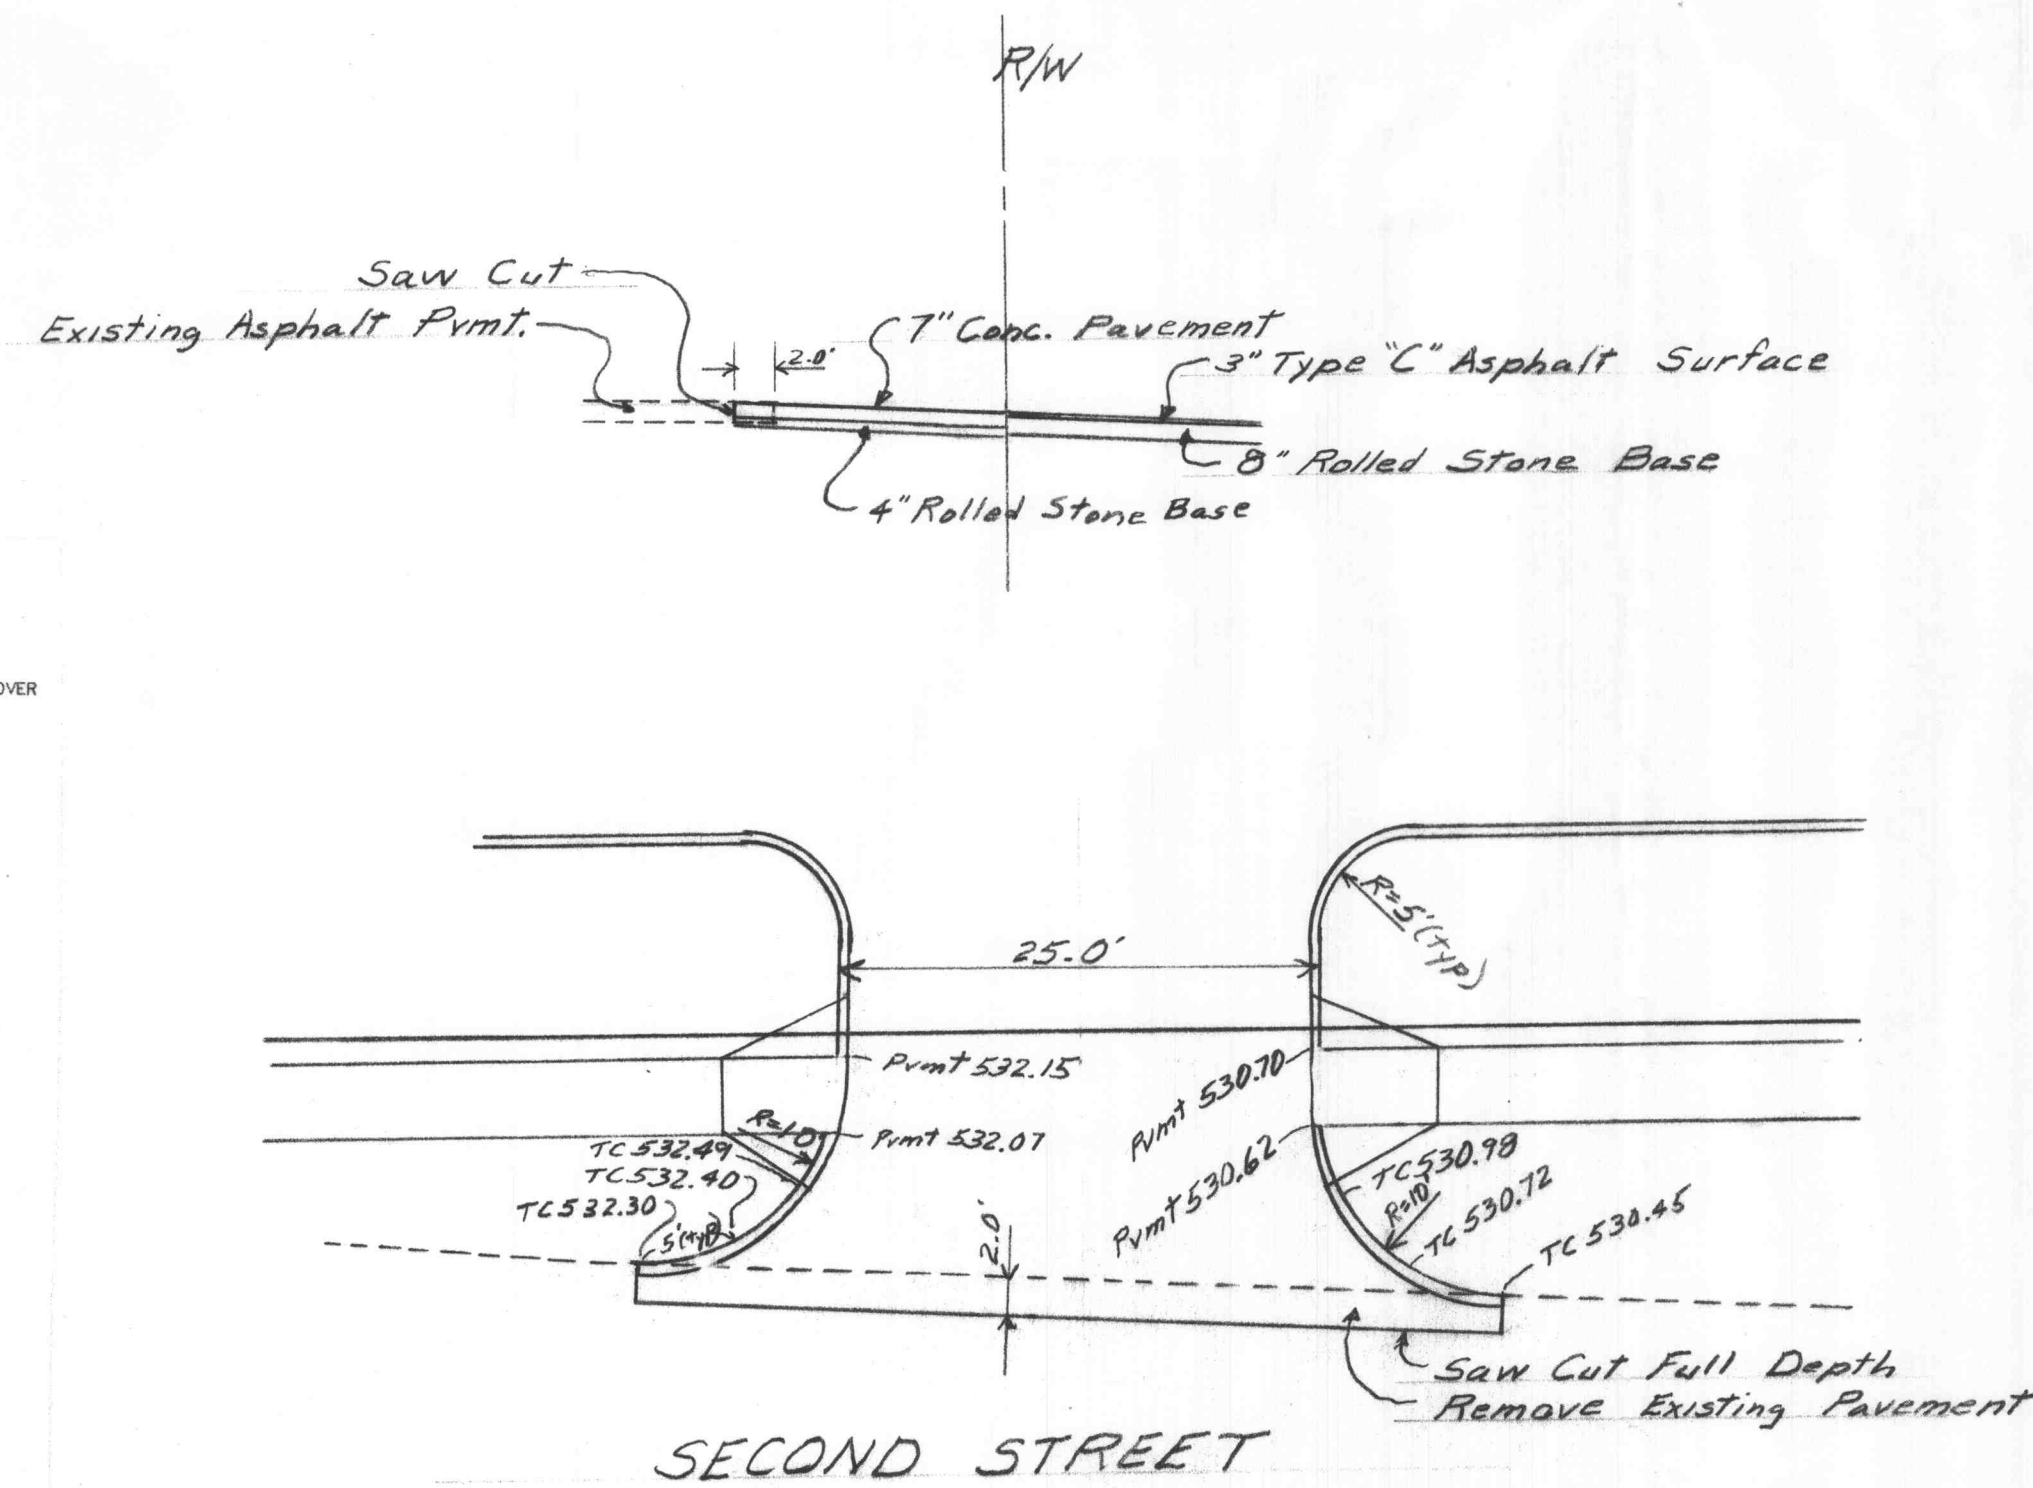 R/W
Saw Cut
Existing Asphalt Pvmt.
7" Conc. Pavement
2.0'
3" Type "C" Asphalt Surface
8" Rolled Stone Base
4" Rolled Stone Base
OVER
R=5'(typ)
25.0'
Pvmt 532.15
Pvmt 530.70
R=10'
Pvmt 532.07
TC 532.49
TC 532.40
TC 532.30
5'(typ)
Pvmt 530.62
TC 530.98
R=10'
TC 530.72
TC 530.45
2.0'
Saw Cut Full Depth
Remove Existing Pavement
SECOND STREET